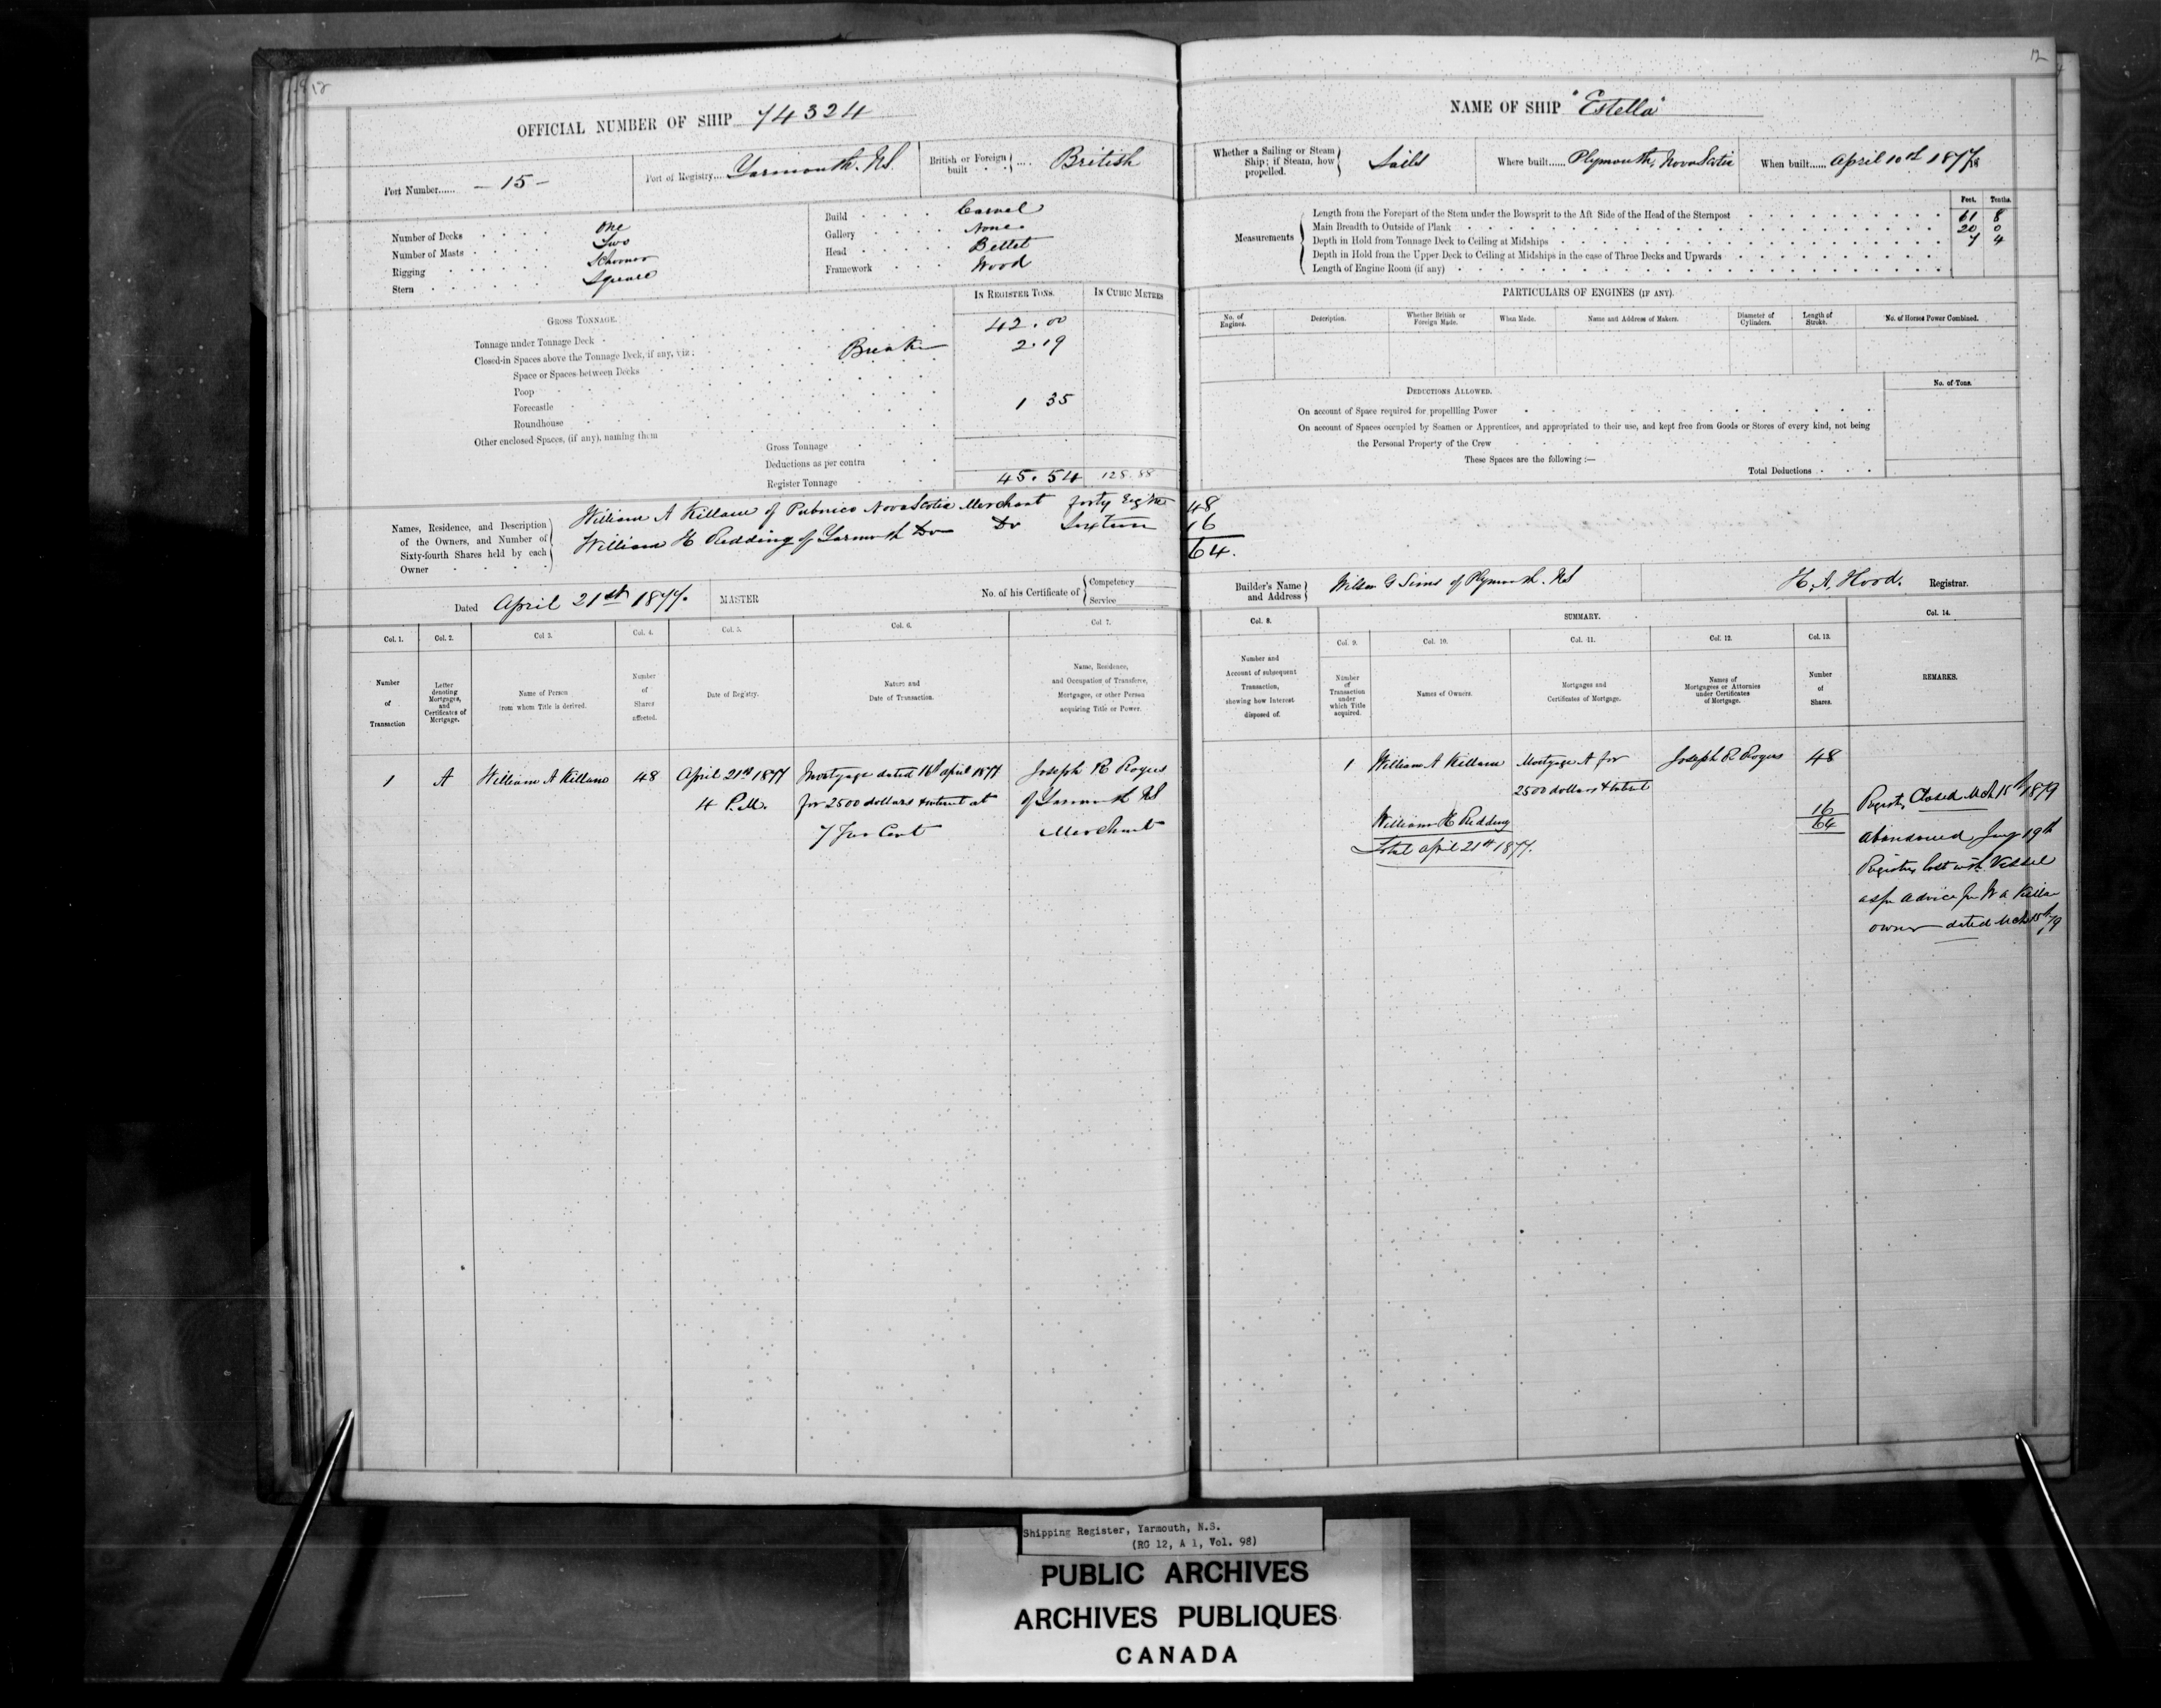 12
OFFICIAL NUMBER OF SHIP 74324
Port Number...... – 15 –
Port of Registry... Yarmouth. NS.
British or Foreign built .... British
Number of Decks One
Number of Masts Two
Rigging Schooner
Stern Square
Build Carvel
Gallery None
Head Billet
Framework Wood
IN REGISTER TONS. IN CUBIC METRES
GROSS TONNAGE.
Tonnage under Tonnage Deck 42.00
Closed-in Spaces above the Tonnage Deck, if any, viz: Break 2.19
Space or Spaces between Decks
Poop
Forecastle 1 35
Roundhouse
Other enclosed Spaces, (if any), naming them
Gross Tonnage
Deductions as per contra
Register Tonnage 45.54 128.88
Names, Residence, and Description of the Owners, and Number of Sixty-fourth Shares held by each Owner
William A Killam of Pubnico Nova Scotia Merchant forty Eight 48
William H Redding of Yarmouth Do Do Sixteen 16
64.
Dated April 21st 1877.
MASTER
No. of his Certificate of { Competency
Service
Col. 1. Col. 2. Col 3. Col. 4. Col. 5. Col. 6. Col 7.
Number of Transaction
Letter denoting Mortgages, and Certificates of Mortgage.
Name of Person from whom Title is derived.
Number of Shares affected.
Date of Registry.
Nature and Date of Transaction.
Name, Residence, and Occupation of Transferee, Mortgagee, or other Person acquiring Title or Power.
1 A William A Killam 48 April 21st 1877 Mortgage dated 16th April 1877 Joseph R Rogers
4 P.M. for 2500 dollars & interest at of Yarmouth NS
7 Per Cent Merchant
12
NAME OF SHIP "Estella"
Whether a Sailing or Steam Ship; if Steam, how propelled. Sails
Where built...... Plymouth, Nova Scotia
When built...... April 10th 1877
Feet. Tenths.
Measurements
Length from the Forepart of the Stem under the Bowsprit to the Aft Side of the Head of the Sternpost 61 8
Main Breadth to Outside of Plank 20 0
Depth in Hold from Tonnage Deck to Ceiling at Midships 7 4
Depth in Hold from the Upper Deck to Ceiling at Midships in the case of Three Decks and Upwards
Length of Engine Room (if any)
PARTICULARS OF ENGINES (IF ANY).
No. of Engines. Description. Whether British or Foreign Made. When Made. Name and Address of Makers. Diameter of Cylinders. Length of Stroke. No. of Horses Power Combined.
DEDUCTIONS ALLOWED.
No. of Tons.
On account of Space required for propelling Power
On account of Spaces occupied by Seamen or Apprentices, and appropriated to their use, and kept free from Goods or Stores of every kind, not being
the Personal Property of the Crew
These Spaces are the following :—
Total Deductions
Builder's Name and Address } G Sims of Plymouth. NS
H. A. Hood. Registrar.
Col. 8. SUMMARY. Col. 14.
Col. 9. Col. 10. Col. 11. Col. 12. Col. 13.
Number and Account of subsequent Transaction, shewing how Interest disposed of.
Number of Transaction under which Title acquired.
Names of Owners.
Mortgages and Certificates of Mortgage.
Names of Mortgagees or Attornies under Certificates of Mortgage.
Number of Shares.
REMARKS.
1 William A Killam Mortgage A for Joseph R Rogers 48
2500 dollars & interest
William H Redding 16
64
Total April 21st 1877.
Registry Closed Mch 15th 1879
Abandoned Jany 19th
Registry lost with Vessel
as pr advice fr W A Killam
owner dated Mch 15th 79
Shipping Register, Yarmouth, N.S.
(RG 12, A 1, Vol. 98)
PUBLIC ARCHIVES
ARCHIVES PUBLIQUES
CANADA